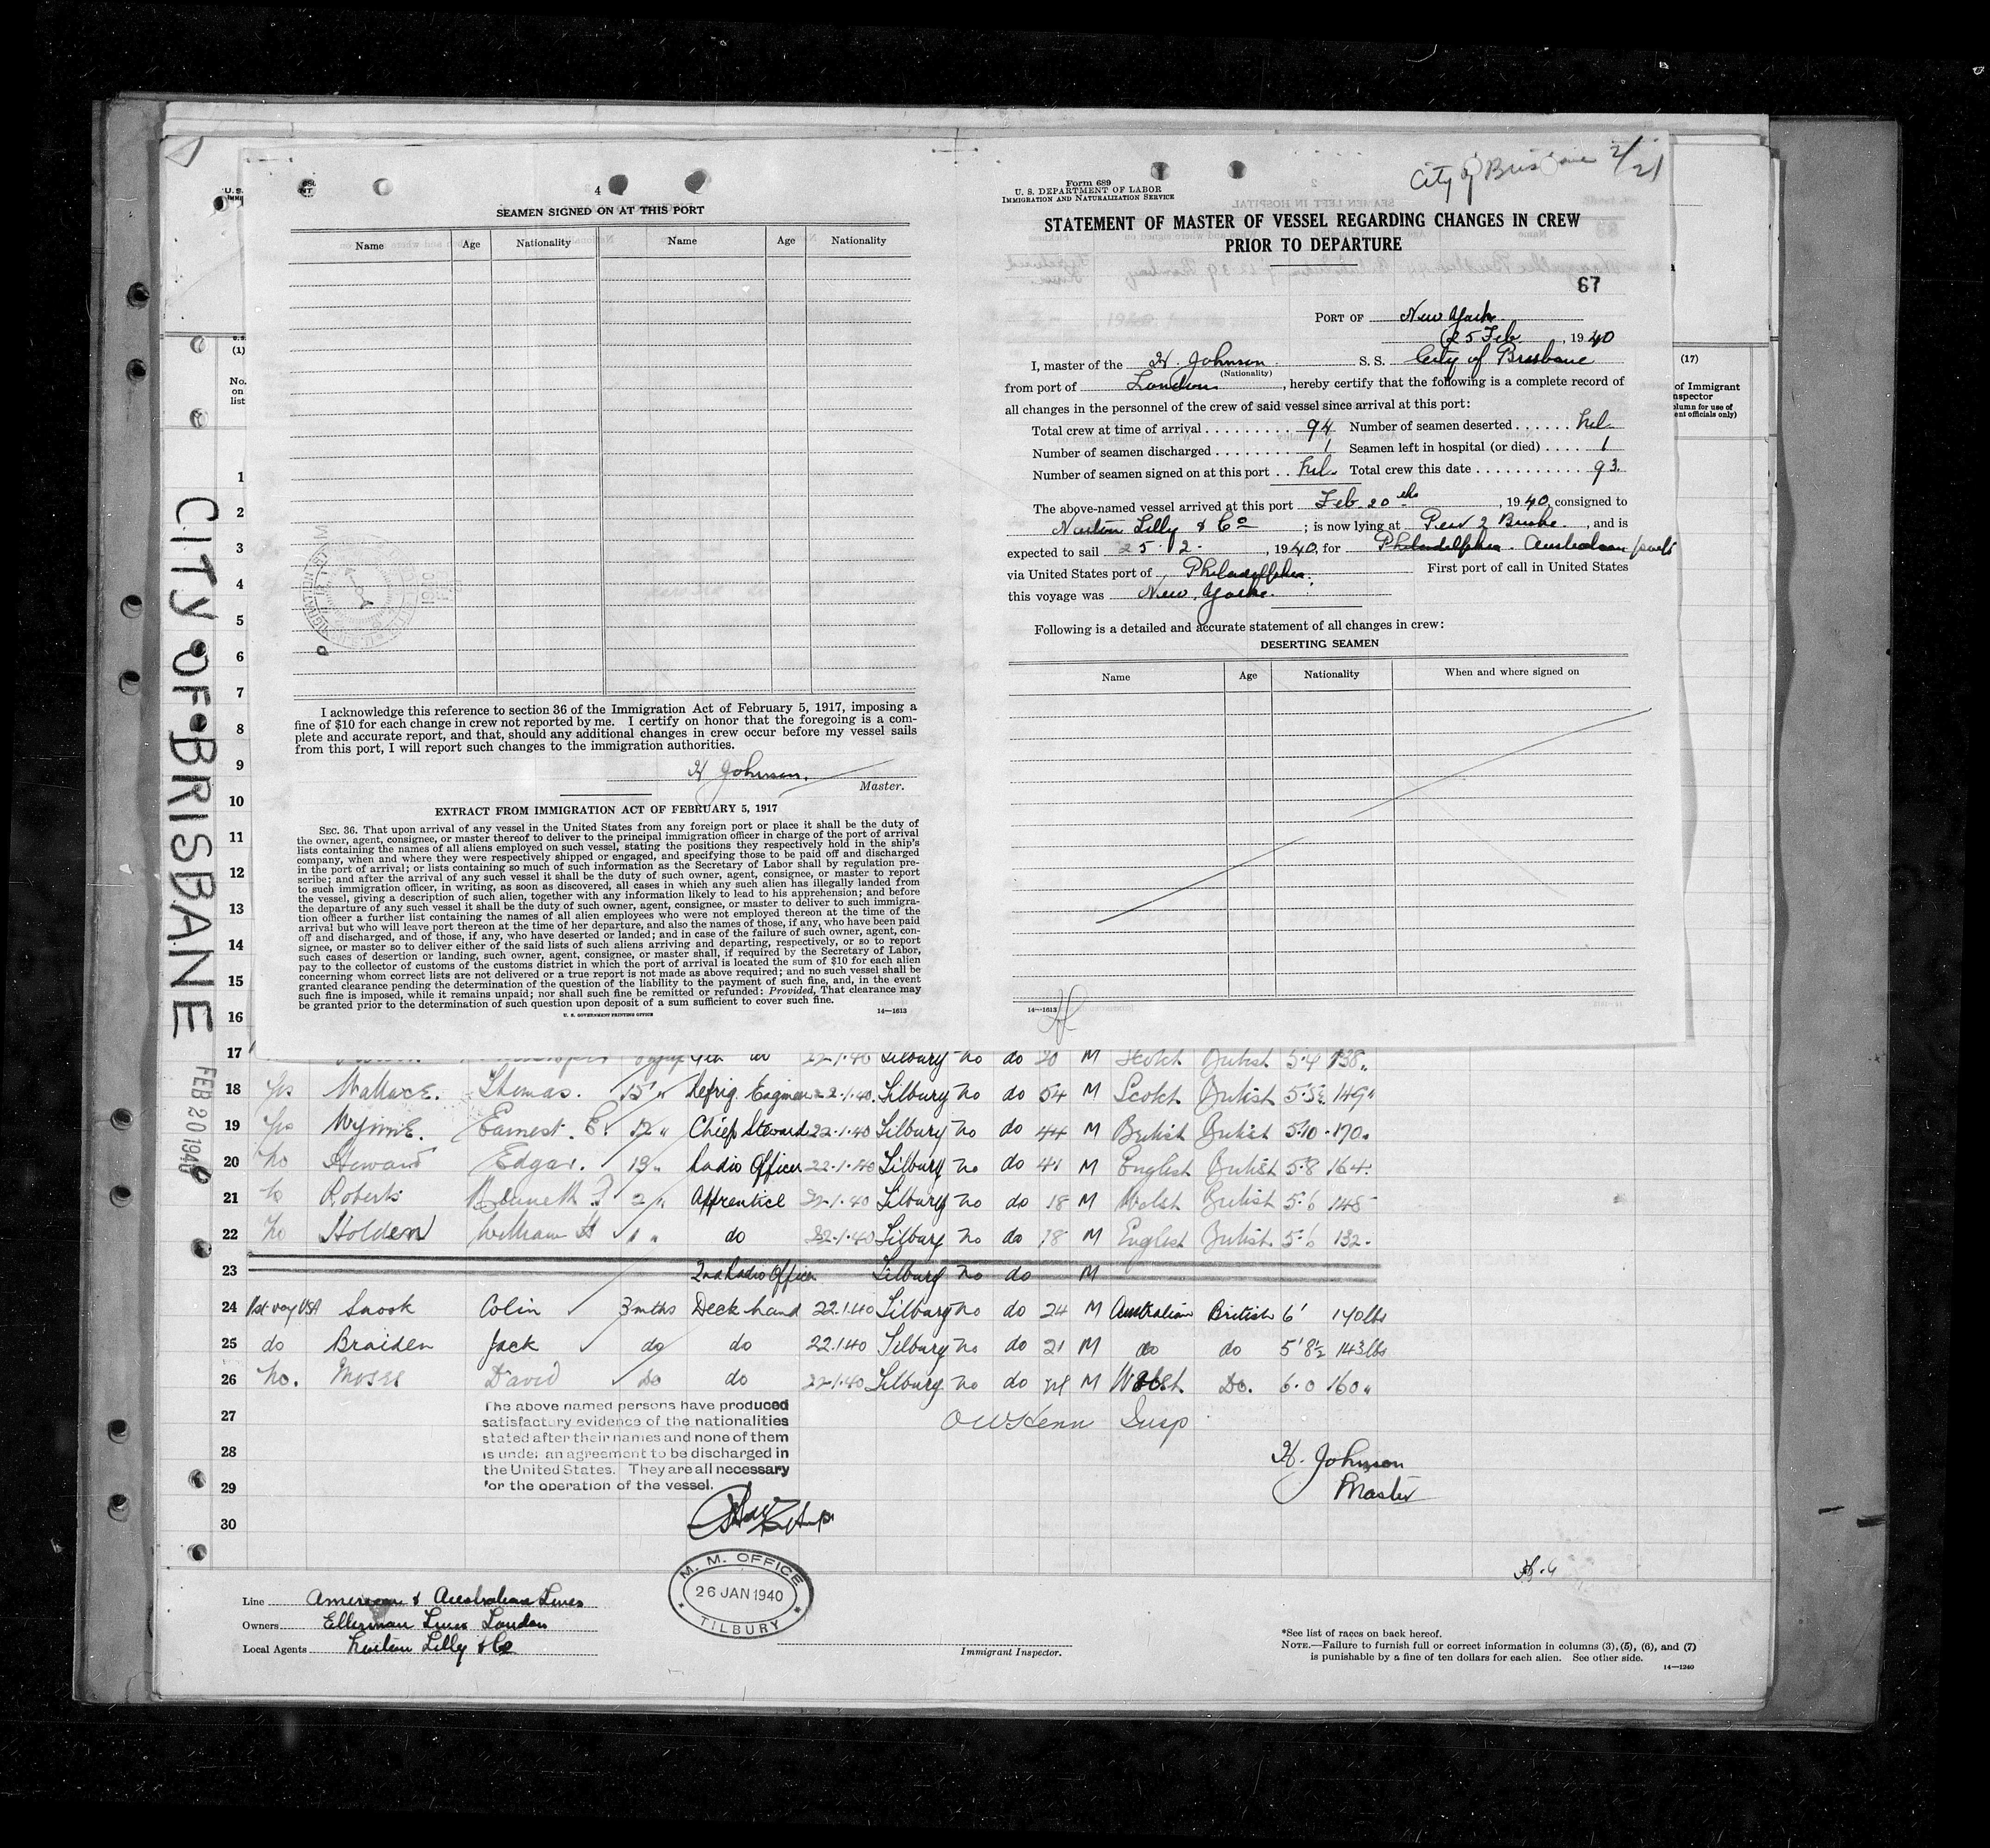 City of Brisbane 2/21
4
SEAMEN SIGNED ON AT THIS PORT
Name Age Nationality Name Age Nationality
I acknowledge this reference to section 36 of the Immigration Act of February 5, 1917, imposing a
fine of $10 for each change in crew not reported by me. I certify on honor that the foregoing is a com-
plete and accurate report, and that, should any additional changes in crew occur before my vessel sails
from this port, I will report such changes to the immigration authorities.
H Johnson.
Master.
EXTRACT FROM IMMIGRATION ACT OF FEBRUARY 5, 1917
SEC. 36. That upon arrival of any vessel in the United States from any foreign port or place it shall be the duty of
the owner, agent, consignee, or master thereof to deliver to the principal immigration officer in charge of the port of arrival
lists containing the names of all aliens employed on such vessel, stating the positions they respectively hold in the ship's
company, when and where they were respectively shipped or engaged, and specifying those to be paid off and discharged
in the port of arrival; or lists containing so much of such information as the Secretary of Labor shall by regulation pre-
scribe; and after the arrival of any such vessel it shall be the duty of such owner, agent, consignee, or master to report
to such immigration officer, in writing, as soon as discovered, all cases in which any such alien has illegally landed from
the vessel, giving a description of such alien, together with any information likely to lead to his apprehension; and before
the departure of any such vessel it shall be the duty of such owner, agent, consignee, or master to deliver to such immigra-
tion officer a further list containing the names of all alien employees who were not employed thereon at the time of the
arrival but who will leave port thereon at the time of her departure, and also the names of those, if any, who have been paid
off and discharged, and of those, if any, who have deserted or landed; and in case of the failure of such owner, agent, con-
signee, or master so to deliver either of the said lists of such aliens arriving and departing, respectively, or so to report
such cases of desertion or landing, such owner, agent, consignee, or master shall, if required by the Secretary of Labor,
pay to the collector of customs of the customs district in which the port of arrival is located the sum of $10 for each alien
concerning whom correct lists are not delivered or a true report is not made as above required; and no such vessel shall be
granted clearance pending the determination of the question of the liability to the payment of such fine, and, in the event
such fine is imposed, while it remains unpaid; nor shall such fine be remitted or refunded: Provided, That clearance may
be granted prior to the determination of such question upon deposit of a sum sufficient to cover such fine.
U. S. GOVERNMENT PRINTING OFFICE 14—1613
Form 689
U. S. DEPARTMENT OF LABOR
IMMIGRATION AND NATURALIZATION SERVICE
STATEMENT OF MASTER OF VESSEL REGARDING CHANGES IN CREW
PRIOR TO DEPARTURE
67
PORT OF New York
25 Feb, 1940
I, master of the H. Johnson S. S. City of Brisbane
(Nationality)
from port of London, hereby certify that the following is a complete record of
all changes in the personnel of the crew of said vessel since arrival at this port:
Total crew at time of arrival 94 Number of seamen deserted nil
Number of seamen discharged 1 Seamen left in hospital (or died) 1
Number of seamen signed on at this port nil. Total crew this date 93.
The above-named vessel arrived at this port Feb 20th, 1940, consigned to
Norton Lilly & Co; is now lying at Pier 2 Bush, and is
expected to sail 25. 2., 1940, for Philadelphia. Australian ports
via United States port of Philadelphia. First port of call in United States
this voyage was New York.
Following is a detailed and accurate statement of all changes in crew:
DESERTING SEAMEN
Name Age Nationality When and where signed on
14—1613
(1)
No. on list
(17)
of Immigrant
nspector
olumn for use of
ent officials only)
CITY OF BRISBANE
FEB 20 1940
1
2
3
4
5
6
7
8
9
10
11
12
13
14
15
16
17 22-1-40 Tilbury no do 20 M Scotch British 5.4 138
18 yes Wallace. Thomas. 15 " Refrig. Engineer 22.1.40. Tilbury no do 54 M Scotch British 5.5½ 149"
19 yes Wynne. Earnest. E. 12 " Chief Steward 22.1.40 Tilbury no do 44 M British British 5.10 170.
20 no Howard Edgar. 19 " Radio Officer 22.1.40 Tilbury no do 41 M English British 5.8 164.
21 no Roberts Kenneth 2 " Apprentice 22.1.40 Tilbury no do 18 M Welsh British 5.6 148
22 no Holden William H 1 " do 22.1.40 Tilbury no do 18 M English British 5.6 132.
23 2nd Radio Officer Tilbury no do M
24 1st voy USA Snook Colin 3 mths Deck hand 22.1.40 Tilbury no do 24 M Australian British 6' 140lbs
25 do Braiden Jack do do 22.1.40 Tilbury no do 21 M do do 5'8½ 143lbs
26 no. Moses David do do 22-1-40 Tilbury no do 21 M Welsh Do. 6.0 160 "
27
28
29
30
The above named persons have produced
satisfactory evidence of the nationalities
stated after their names and none of them
is under an agreement to be discharged in
the United States. They are all necessary
for the operation of the vessel.
H. Johnson
Master
M. M. OFFICE
26 JAN 1940
TILBURY
Line American & Australian Lines
Owners Ellerman Lines London
Local Agents Norton Lilly & Co
Immigrant Inspector.
*See list of races on back hereof.
NOTE.—Failure to furnish full or correct information in columns (3), (5), (6), and (7)
is punishable by a fine of ten dollars for each alien. See other side.
14—1240